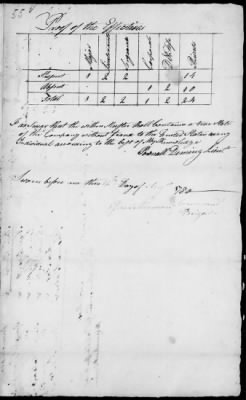 55
Proof of the Effectives
Majors Lieutenants Serjeants Corporals D & Fifes Privates
Present 1 2 2 1 14
Absent 1 2 10
Total 1 2 2 1 2 24
I do swear that the within Muster Roll Contains a true State
of the Company without fraud to the United States or any
Individual according to the best of My Knowledge
Pownall Deming Lieut
Sworn before me this Day of 1780